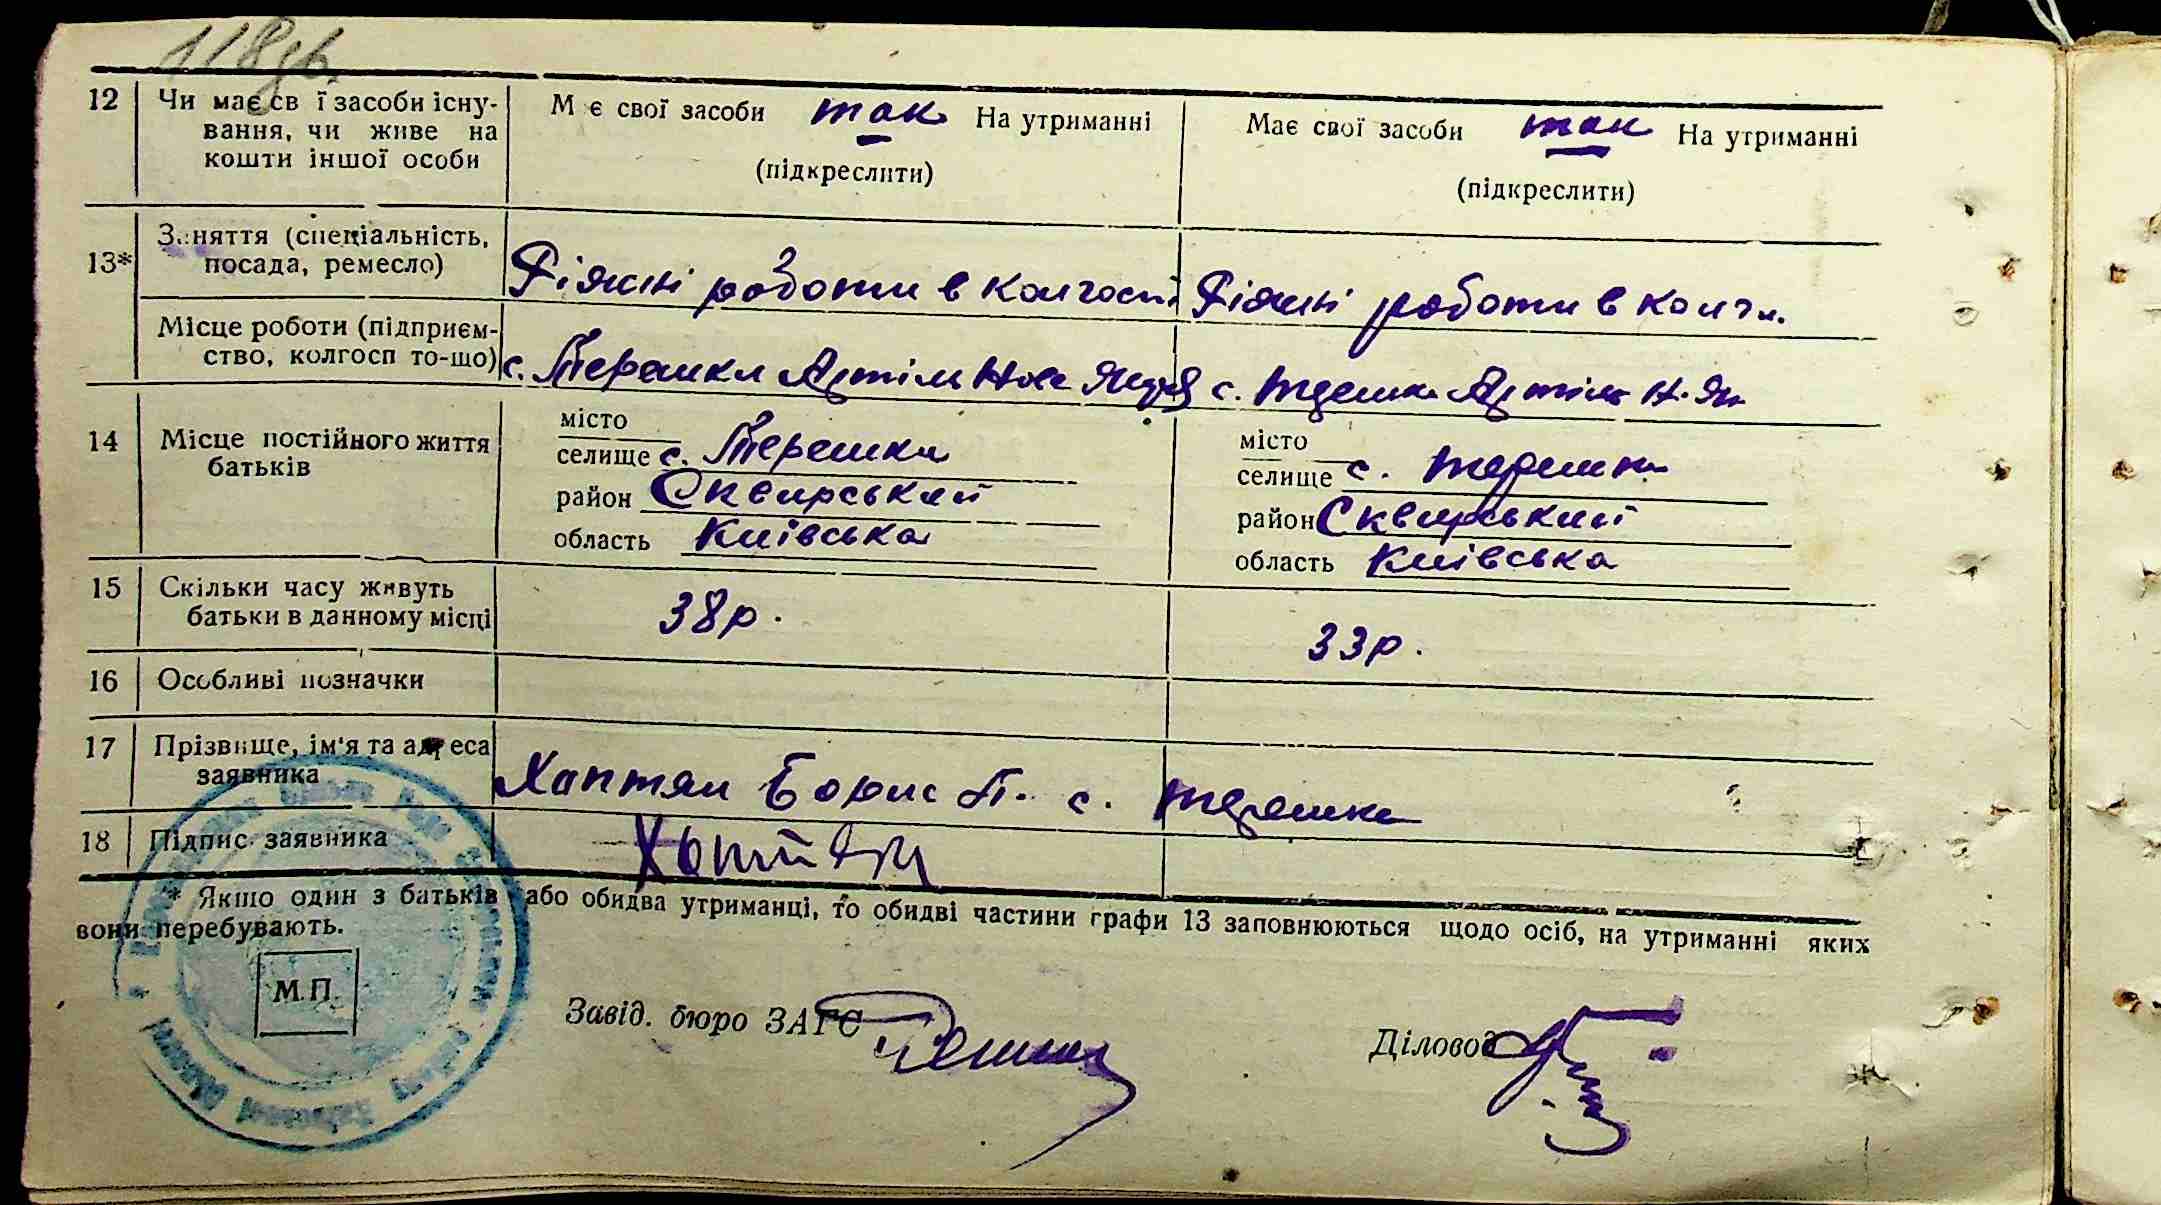 118зв.
12 Чи має св ї засоби існу- М є свої засоби так На утриманні Має свої засоби так На утриманні
вання, чи живе на (підкреслити) (підкреслити)
кошти іншої особи
13* Заняття (спеціальність, Різині роботи в колгоспі Різині роботи в колг.
посада, ремесло)
Місце роботи (підприєм- с. Терешки Артіль Нове с. Терешки Артіль Н.
ство, колгосп то-що)
14 Місце постійного життя місто місто
батьків селище с. Терешки селище с. Терешки
район Сквирський район Сквирський
область Київська область Київська
15 Скільки часу живуть 38р. 33р.
батьки в данному місці
16 Особливі позначки
17 Прізвище, ім'я та адреса Хаптян Борис П. с. Терешки
заявника
18 Підпис заявника Хаптян
* Якшо один з батьків або обидва утриманці, то обидві частини графи 13 заповнюються щодо осіб, на утриманні яких
вони перебувають.
М.П.
Завід. бюро ЗАГС Діловод